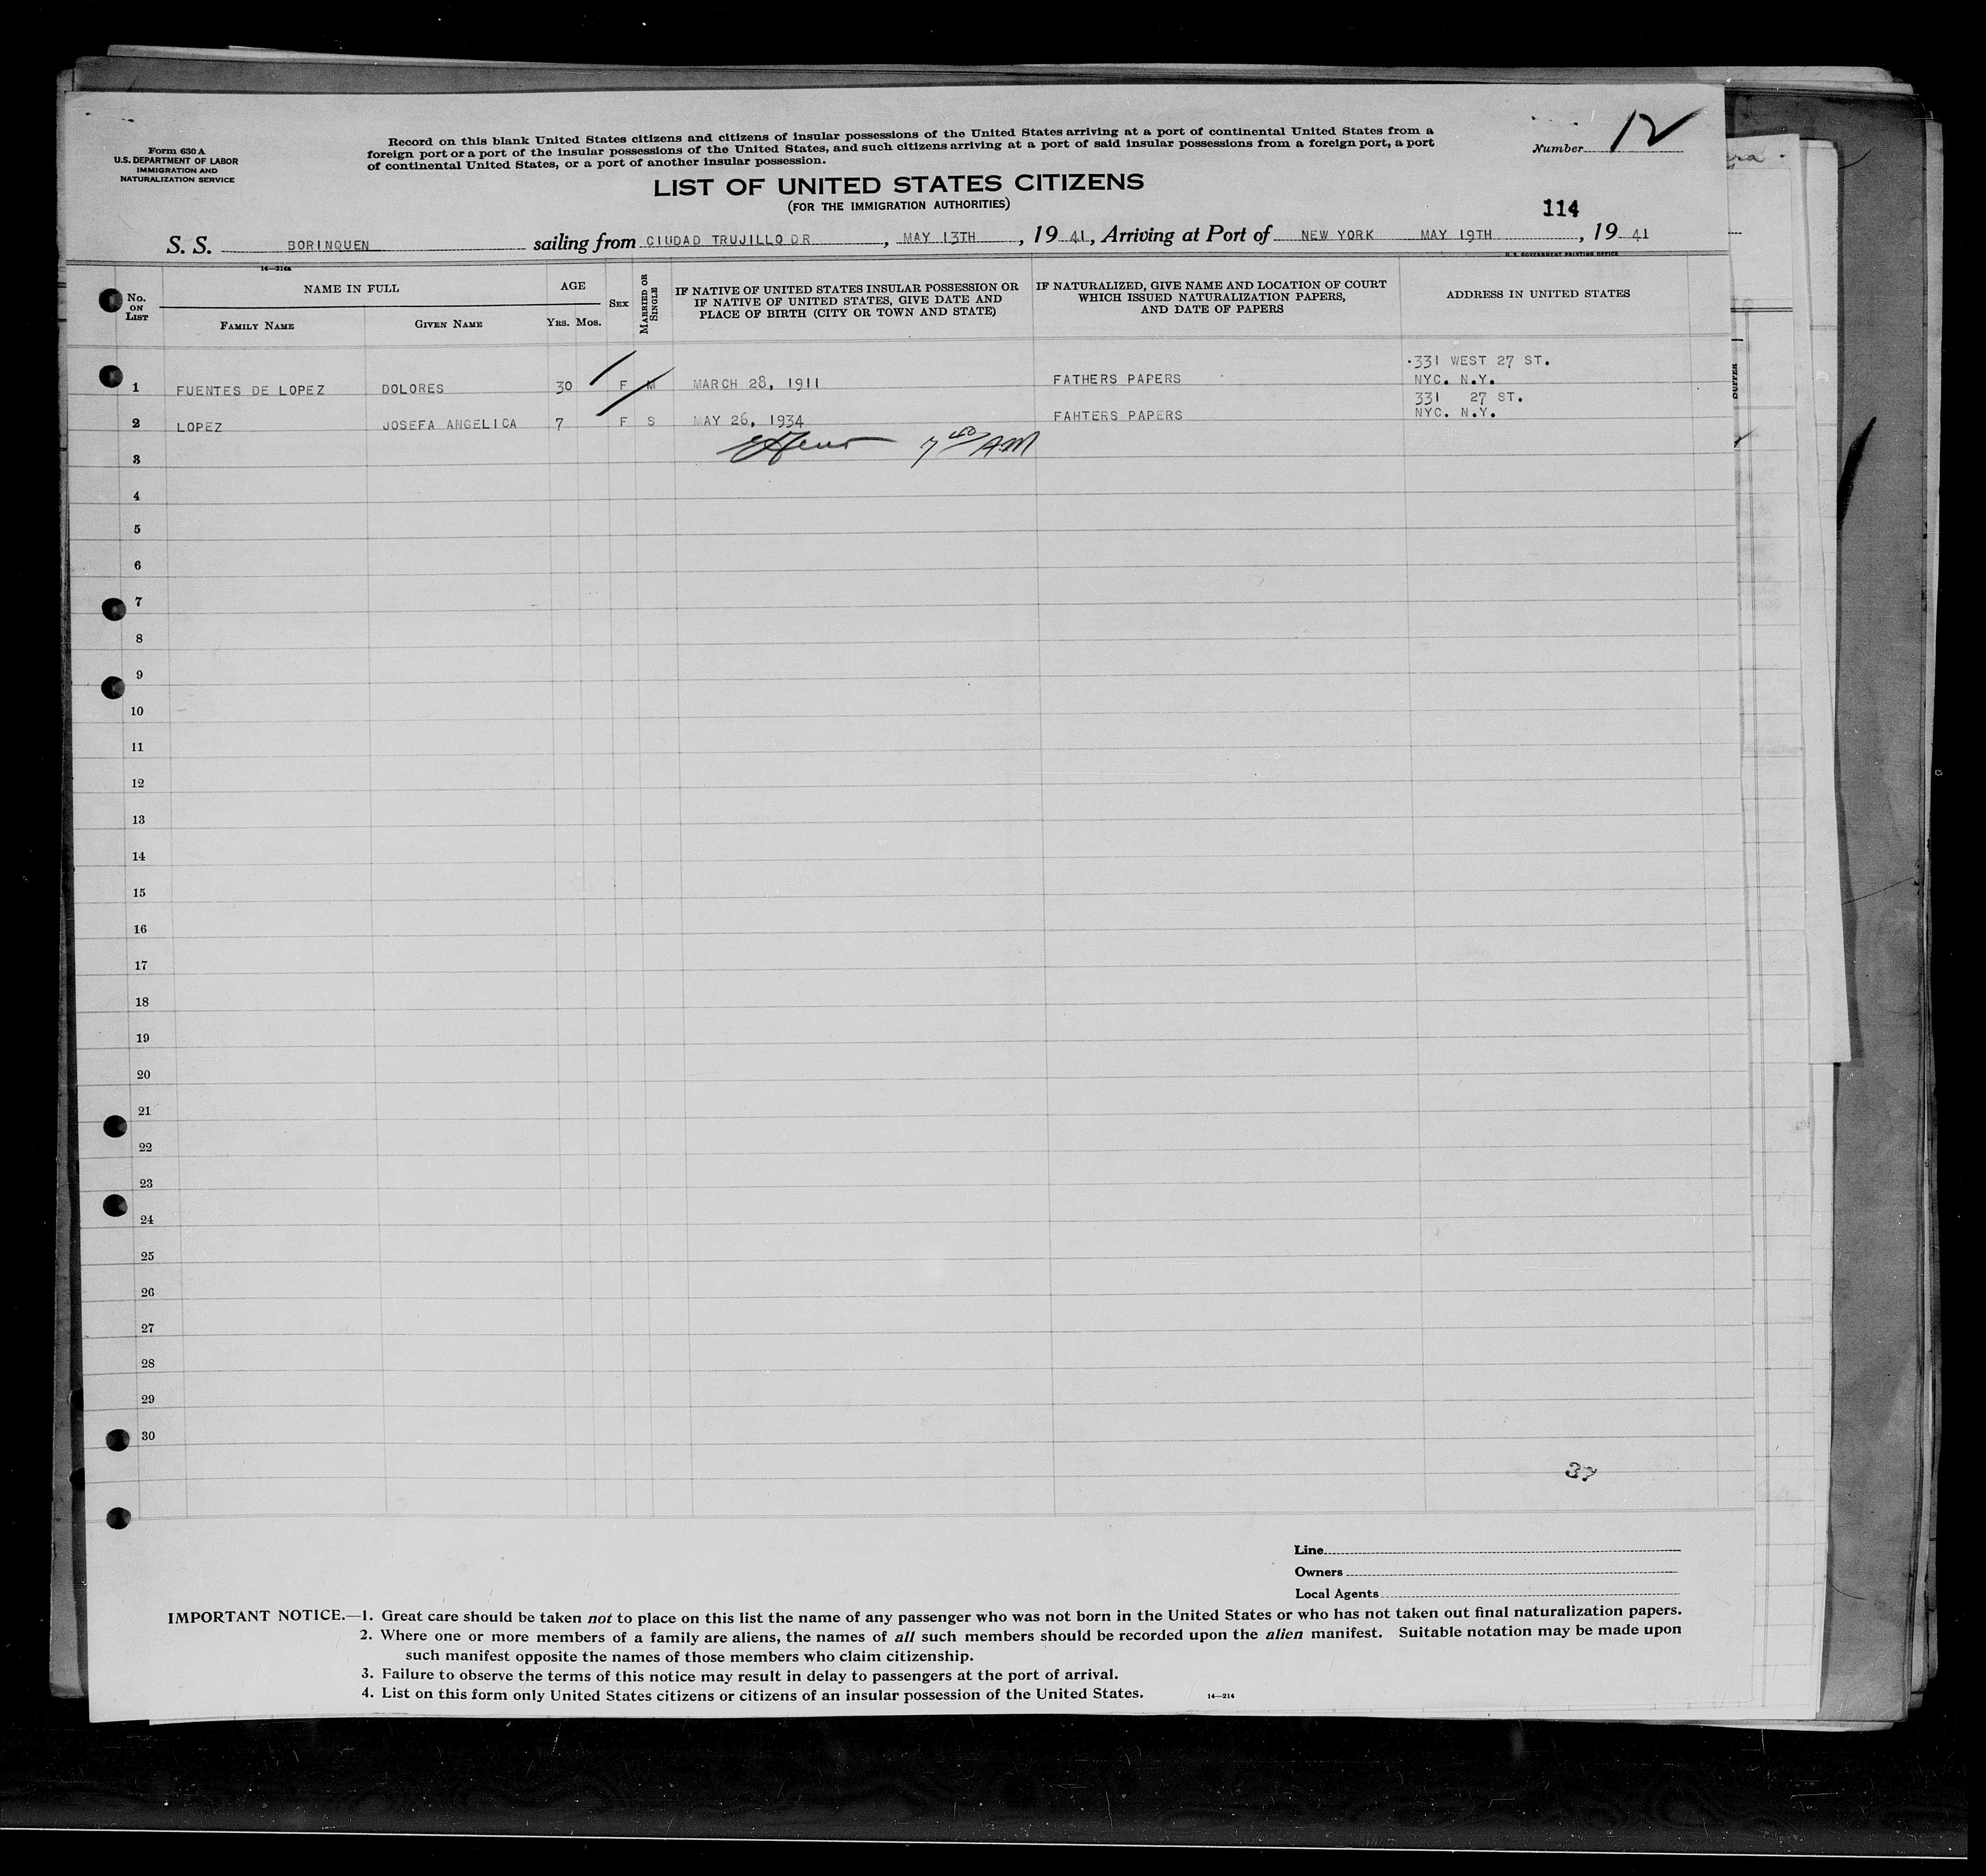 Form 630 A
U.S. DEPARTMENT OF LABOR
IMMIGRATION AND
NATURALIZATION SERVICE
Record on this blank United States citizens and citizens of insular possessions of the United States arriving at a port of continental United States from a
foreign port or a port of the insular possessions of the United States, and such citizens arriving at a port of said insular possessions from a foreign port, a port
of continental United States, or a port of another insular possession.
Number 12
LIST OF UNITED STATES CITIZENS
(FOR THE IMMIGRATION AUTHORITIES)
114
S. S. BORINQUEN sailing from CIUDAD TRUJILLO DR, MAY 13TH, 19 41, Arriving at Port of NEW YORK MAY 19TH, 19 41
14—214a
U.S. GOVERNMENT PRINTING OFFICE
No. ON LIST
NAME IN FULL
FAMILY NAME GIVEN NAME
AGE
YRS. MOS.
SEX
MARRIED OR SINGLE
IF NATIVE OF UNITED STATES INSULAR POSSESSION OR
IF NATIVE OF UNITED STATES, GIVE DATE AND
PLACE OF BIRTH (CITY OR TOWN AND STATE)
IF NATURALIZED, GIVE NAME AND LOCATION OF COURT
WHICH ISSUED NATURALIZATION PAPERS,
AND DATE OF PAPERS
ADDRESS IN UNITED STATES
331 WEST 27 ST.
1 FUENTES DE LOPEZ DOLORES 30 F M MARCH 28, 1911 FATHERS PAPERS NYC. N.Y.
331 27 ST.
2 LOPEZ JOSEFA ANGELICA 7 F S MAY 26, 1934 FAHTERS PAPERS NYC. N.Y.
7 40 AM
3
4
5
6
7
8
9
10
11
12
13
14
15
16
17
18
19
20
21
22
23
24
25
26
27
28
29
30
37
Line
Owners
Local Agents
IMPORTANT NOTICE.—1. Great care should be taken not to place on this list the name of any passenger who was not born in the United States or who has not taken out final naturalization papers.
2. Where one or more members of a family are aliens, the names of all such members should be recorded upon the alien manifest. Suitable notation may be made upon
such manifest opposite the names of those members who claim citizenship.
3. Failure to observe the terms of this notice may result in delay to passengers at the port of arrival.
4. List on this form only United States citizens or citizens of an insular possession of the United States.
14—214